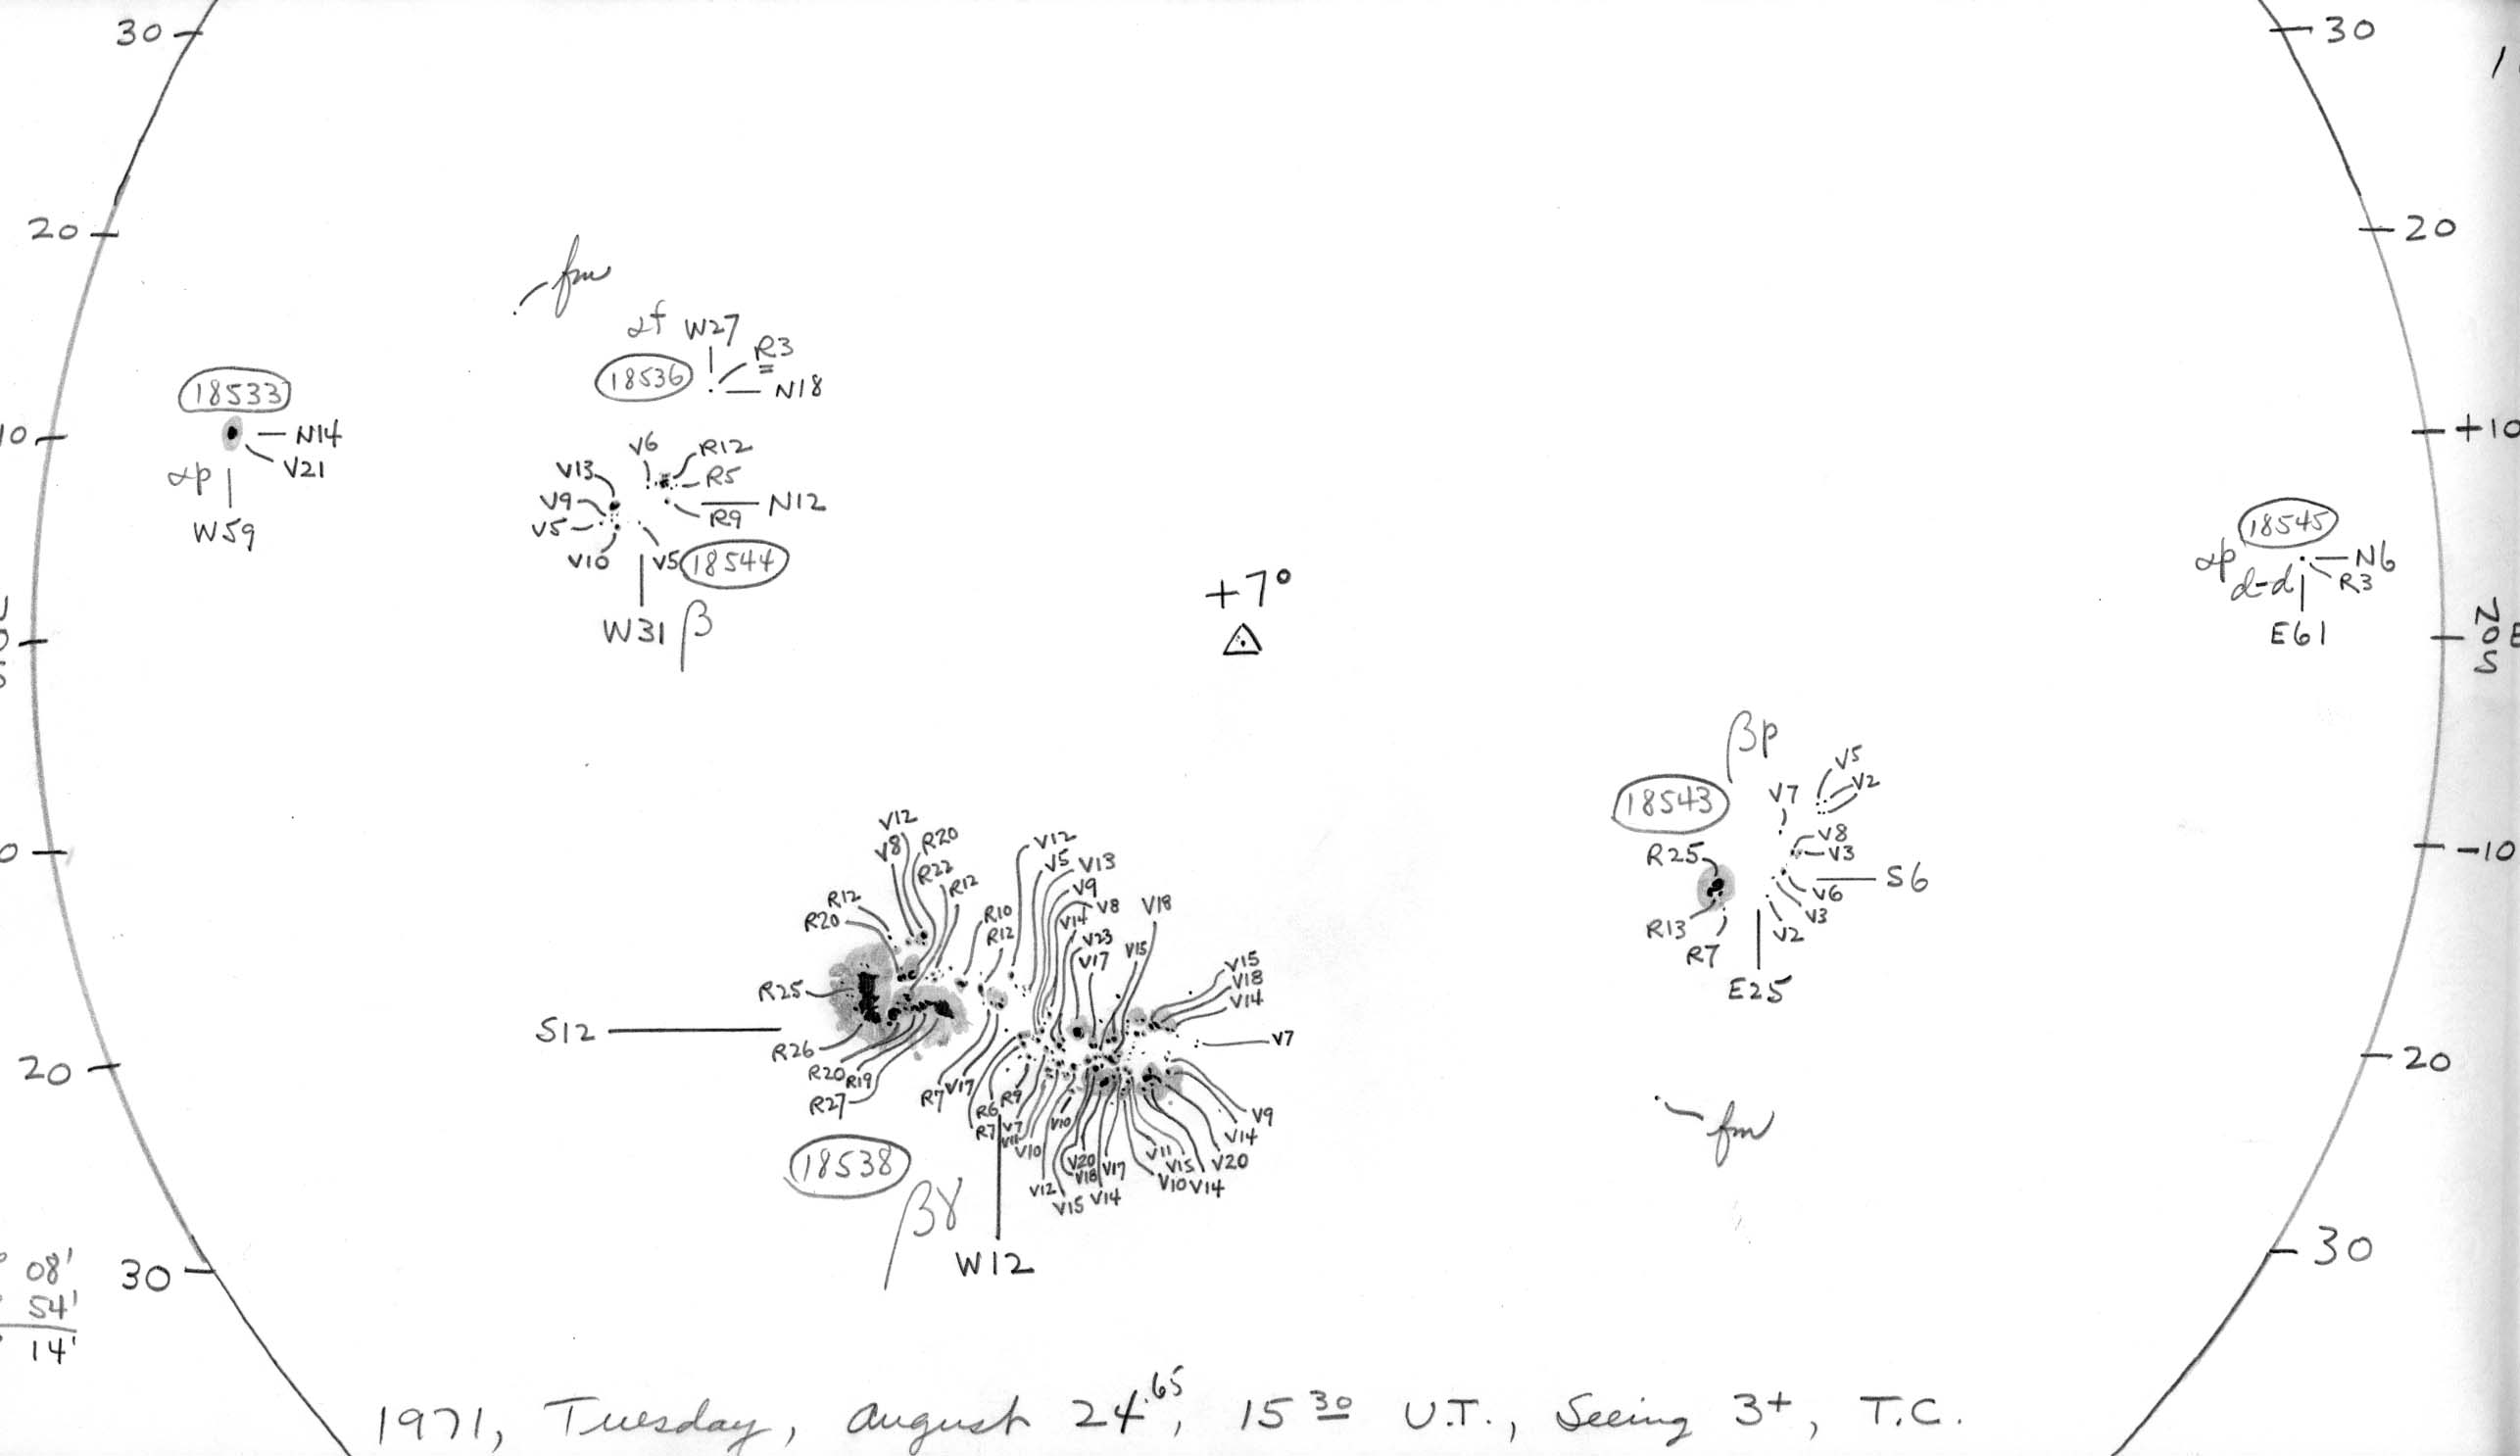 30
30
20
20
fm
αf W27
R3
18536
N18
18533
10
N14
V21
αp
W59
+10
V6
R12
V13
R5
V9
R9
N12
V5
V10
V5
18544
W31
β
18545
αp
N6
d-d
R3
E61
+7°
N
0
S
βp
V5
V2
V7
18543
V8
V3
R25
S6
V6
V3
R13
V2
R7
E25
0
-10
V12
V8
R20
R22
R12
R12
R20
R10
R12
V12
V5
V13
V9
V8
V14
V18
V23
V17
V15
V15
V18
V14
V7
R25
S12
R26
R20
R19
R27
R7
V17
R6
R9
R7
V7
V11
V10
V10
V12
V20
V18
V17
V15
V14
V11
V15
V20
V10
V14
V14
V9
18538
βγ
W12
20
20
fm
30
30
08'
54'
14'
1971, Tuesday, August 24.65, 15 30 U.T., Seeing 3+, T.C.